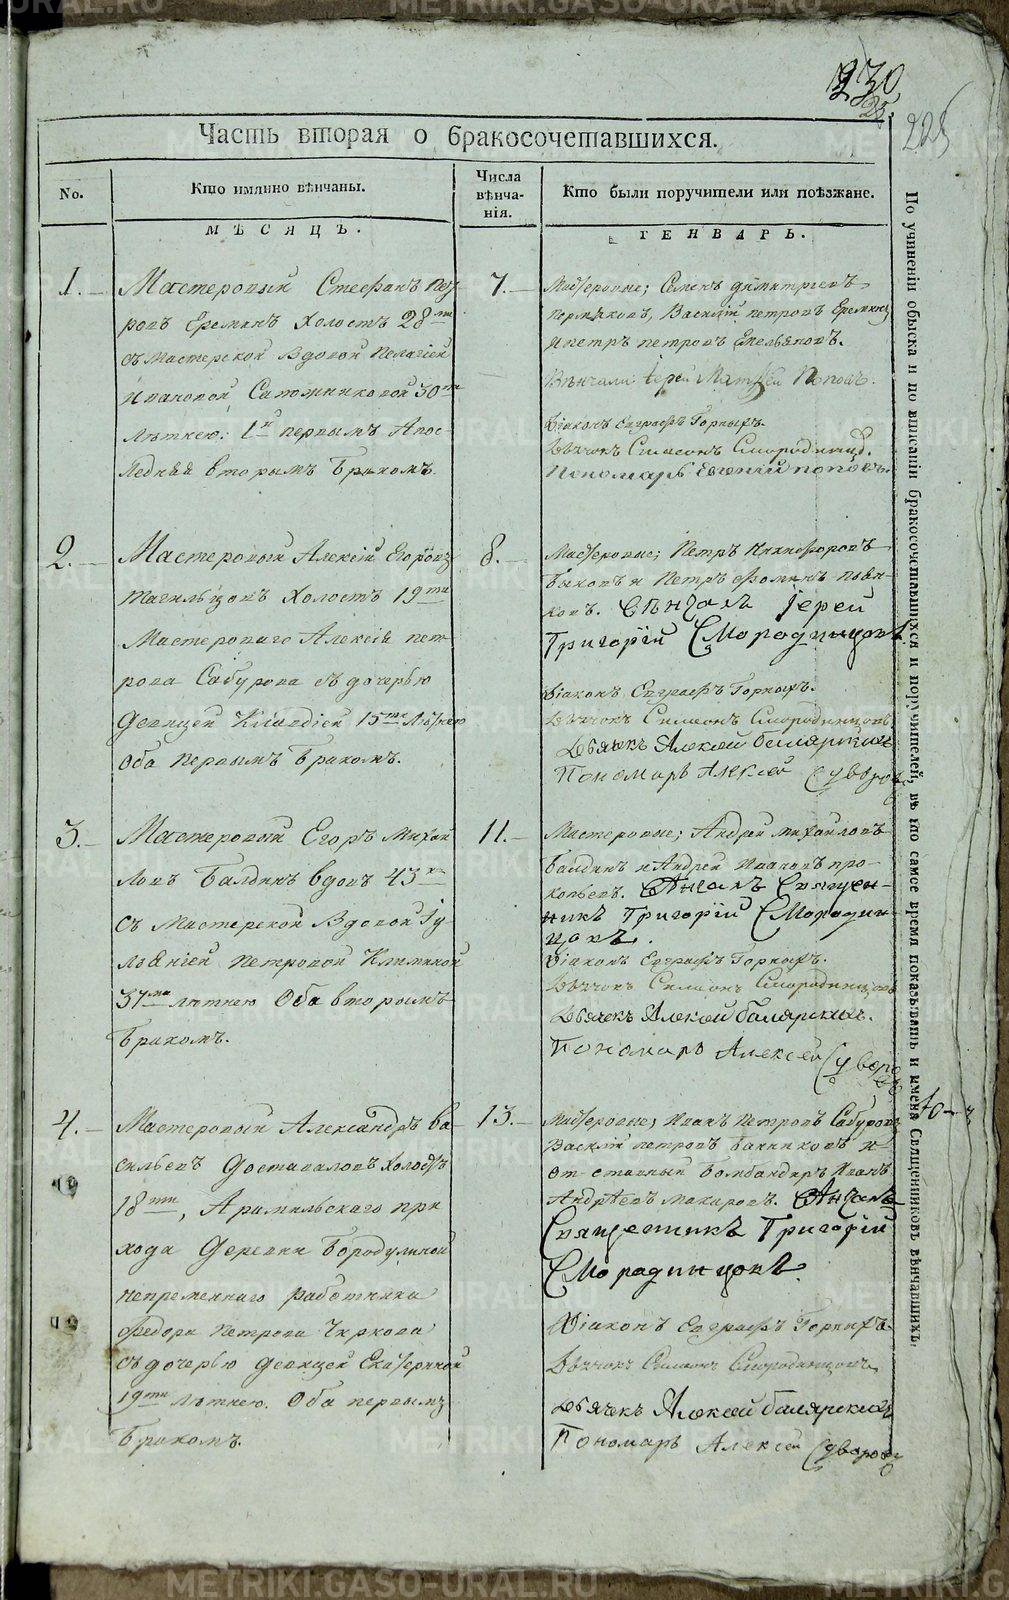 230
25.
225
Часть вторая о бракосочетавшихся.
No.
Кто имянно вѣнчаны.
Числа
вѣнча-
нія.
Кто были поручители или поѣзжане.
МѢСЯЦЪ.
ГЕНВАРЬ.
1.
Мастеровый Стефанъ Пет
ровъ Ереминъ холостъ 28ти
съ мастерской вдовой Пелагіей
Ивановой Сапожниковой 30ти
лѣтнею: 1й первымъ а пос-
ледняя вторымъ бракомъ.
7.
Мастеровые; Семенъ Димитріевъ
Пермяковъ, Василій Петровъ Ереминъ
и Петръ Петровъ Емельяновъ.
Вѣнчали Іерей Матѳей Поповъ.
Діаконъ Евграфъ Горныхъ.
Дьячокъ Симеонъ Смородинцо.
Пономарь Евгений Поповъ.
2.
Мастеровый Алексій Егоровъ
Тагильцовъ холостъ 19ти
Мастероваго Алексія Пет
рова Сабурова съ дочерью
девицей Клавдіей 15ти лѣтнею
Оба первымъ бракомъ.
8.
Мастеровые; Петръ Никифоровъ
Быковъ и Петръ Фоминъ
Вѣнчалъ Іерей
Григорій Смородинцовъ
Діаконъ Евграфъ Горныхъ.
Дьячокъ Симеонъ Смородинцовъ
Дьячекъ Алексей Балярскихъ
Пономарь Алексей Суворовъ
3.
Мастеровый Егоръ Михай
ловъ Балдинъ вдовъ 43хъ
съ мастерской вдовой Іу
льяніей Петровой Климиной
37ми лѣтнею Оба вторымъ
бракомъ.
11.
Мастеровые; Андрей Михайловъ
Балдинъ и Андрей Ивановъ Про-
копьевъ. Вѣнчалъ Священ-
никъ Григорій Смородин-
цовъ.
Діаконъ Евграфъ Горныхъ.
Дьячокъ Симеонъ Смородинцовъ
Дьячекъ Алексей Балярскихъ.
Пономарь Алексей Суворовъ
4.
Мастеровый Александръ Ва-
сильевъ Доставаловъ холостъ
18ти, Арамильскаго при
хода деревни Бородулиной
непременнаго работника
Федора Петрова Чиркова
съ дочерью девицей Екатериной
19ти лѣтнею. Оба первымъ
бракомъ.
13.
Мастеровые; Иванъ Петровъ Сабуровъ
Василій Петровъ Банниковъ и
отставный бомбандиръ Иванъ
Андрѣевъ Макаровъ. Вѣнчалъ
Священникъ Григорій
Смородинцовъ.
Діаконъ Евграфъ Горныхъ
Дьячокъ Симеонъ Смородинцовъ
Дьячекъ Алексей Балярскихъ
Пономарь Алексей Суворовъ
По учиненіи обыска и по вписаніи бракосочетавшихся и поручителей, въ то самое время показывать и имена Священниковъ вѣнчавшихъ.
METRIKI.GASO-URAL.RU